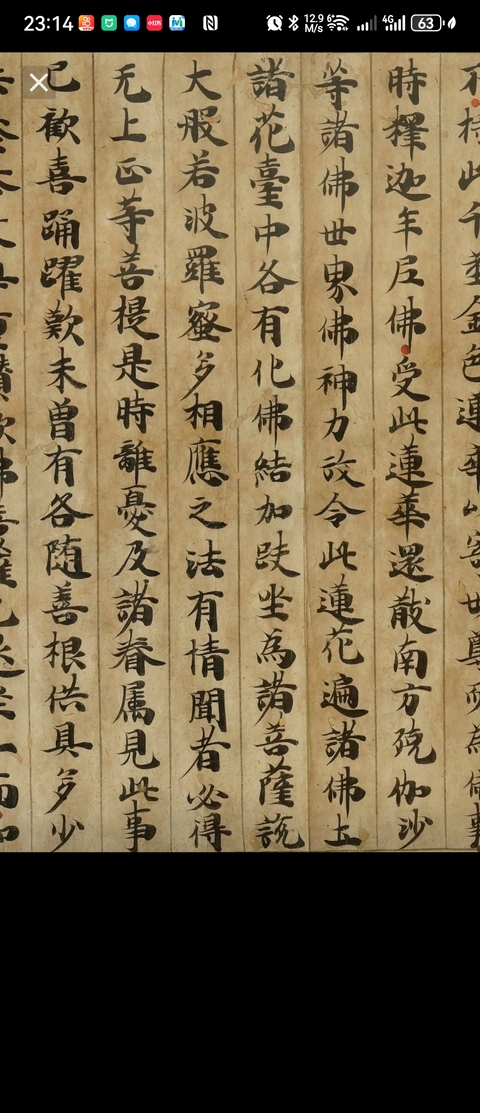 23:14
12.9 M/s
6
4G
63
此千莖金色蓮華以寄世尊而為佛事
時釋迦牟尼佛受此蓮華還散南方殑伽沙
等諸佛世界佛神力故令此蓮花遍諸佛土
諸花臺中各有化佛結加趺坐為諸菩薩說
大般若波羅蜜多相應之法有情聞者必得
无上正等菩提是時離憂及諸眷属見此事
已歡喜踊躍歎未曾有各随善根供具多少